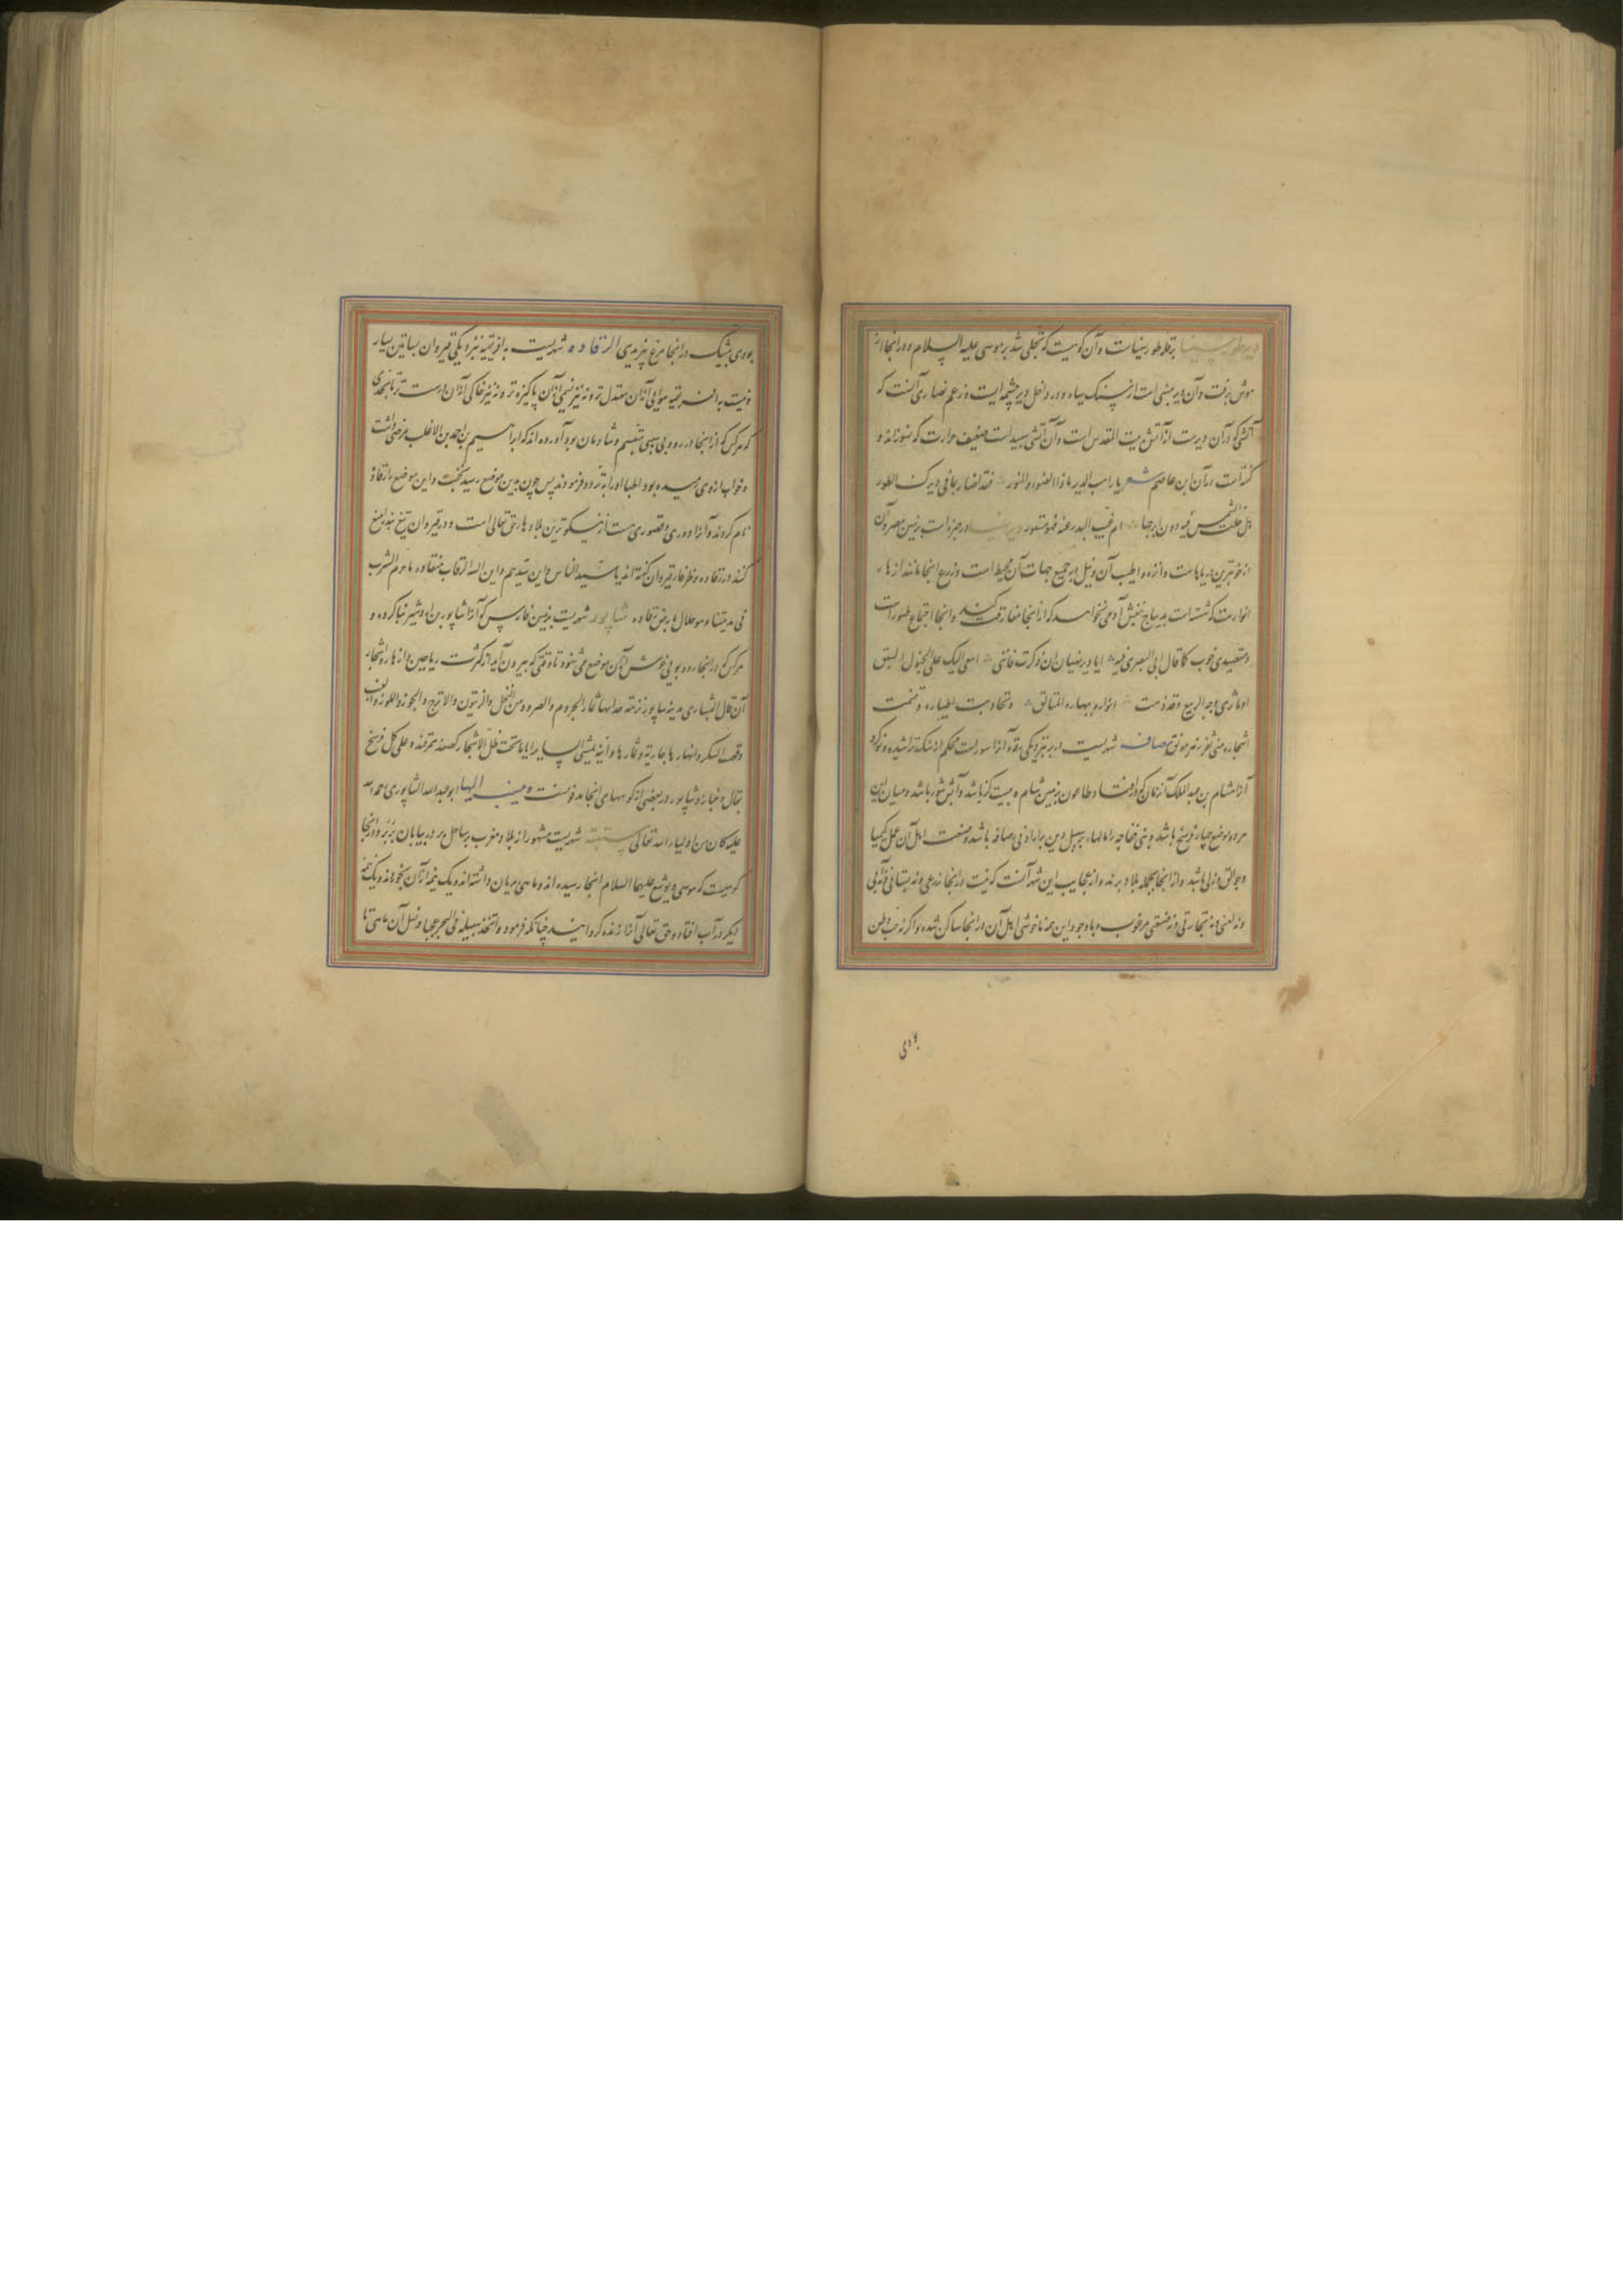 دیر طور سینا بر قله طور سیناست و آن کوهیست که تجلی شد بر موسی علیه السلام و در انجا از
هوش برفت و آن دیر مبنی است از سنک سیاه و در داخل دیر چشمه ایست و زعم نصاری آنست که
آتشی که در آن دیرست از آتش بیت المقدس است و آن آتشی سپید است ضعیف حرارت که نسوزاند و
گفته است در آن ابن عاصم شعر یا راهب الدیر ماذا الضوء والنور فقد اضاء بما فی دیرک الطور
هل حلت الشمس فیه دون ابرجها ام غیب البدر عنه فهو مستور در جیزه است بزمین مصر و آن
از خوبترین دیرهاست و انزه و اطیب آن و نیل بر جمیع جهات آن محیط است و زرع انجا مانند ازهار
انوار است بدیباج منقش آدمی نخواهد که از انجا مفارقت کند و انجا اجتماع طیور است
و متصیدی خوب کما قال ابی البصری فیه ایا دیر نهیان ان ذکرت فاننی اسعی الیک علی الخیول السبق
اوما تری وجه الربیع وقد زهت انواره بنهاره المتالق وتجاوبت اطیاره وتبسمت
اشجاره من ثغر زهر مونق رصافه شهریست در بر بنزدیکی رقه آنرا سوریست محکم از سنک تراشیده بنا کرد
آنرا هشام بن عبدالملک آن زمان که افتاد طاعون بزمین شام و بیست گز باشد و آبش شور باشد و میان این
هر دو موضع چهار فرسخ باشد و بنی خفاجه را مالها بر سبیل دین بر اراذنی رصافه باشد و صنعت اهل آن عمل کیسا
و جوالق و زلی باشد و از انجا بجمله بلاد برند و از عجایب این شهر آنست که نیست در انجا زرعی و نه بستانی و نه آبی
و نه امنی و نه تجارتی و نه صنعتی مرغوب و با وجود این همه ناخوشی اهل آن در انجا ساکن شده اند و اگر نه حب وطن
بودی
بودی بیشک در انجا مرغ نپریدی الرقاده شهریست به افریقیه نزدیکی قیروان بساتین بسیار
و نیست به افریقیه هوایی از آن معتدل تر و نه نیز نسیمی از آن پاکیزه تر و نه نیز خاکی از آن درست تر تا بحدی
که هر کس که از انجا در رود بی سببی متبسم و شادمان بود آورده اند که ابراهیم بن احمد بن الاغلب مرضی داشت
و خواب از وی رمیده بود اطبا او را به تردد فرمودند پس چون بدین موضع رسید بخفت و این موضع را رقاده
نام کردند و آنرا دوری و قصوری هست از نیکوترین بلادهاء حق تعالی است و در قیروان بیع نبیذ منع
کنند در رقاده و ظرفاء قیروان گفته اند یا سید الناس و ابن سیدهم و ابن الیه الرقاب منقاده ما حرم الشرب
فی مدینتنا و هو حلال بارض رقاده شاپور شهریست بزمین فارس که آنرا شاپور بن اردشیر بنا کرده و
هر کس که در انجا رود بویی خوش از آن موضع می شنود تا وقتی که بیرون آید از کثرت ریاحین و ازهار و اشجار
آن قال البشاری مدینة سابور نزهة قد اجتمع بها ثمار الجروم والصرود من النخل والزیتون والاترج والجوز واللوز والعنب
وقصب السکر وانهارها جاریة وثمارها دانیة یمشی السایر ایاما تحت ظل الاشجار کصغد سمرقند وعلی کل فرسخ
بقال وخباز و شاپور در بعضی از کوههای انجا مدفونست و ینسب الیها ابو عبدالله الشاپوری رحمه الله
علیه کان من اولیاء الله تعالی سبته شهریست مشهور از بلاد مغرب بر ساحل بحر در بیابان بربر و در انجا
کوهیست که موسی و یوشع علیهما السلام انجا رسیده اند و ماهی بریان داشته اند و یک نیمه از آن بخورده اند و یک نیمه
دیگر در آب افتاده حق تعالی آنرا زنده گردانید چنانکه فرمود واتخذ سبیله فی البحر عجبا و نسل آن ماهی تا